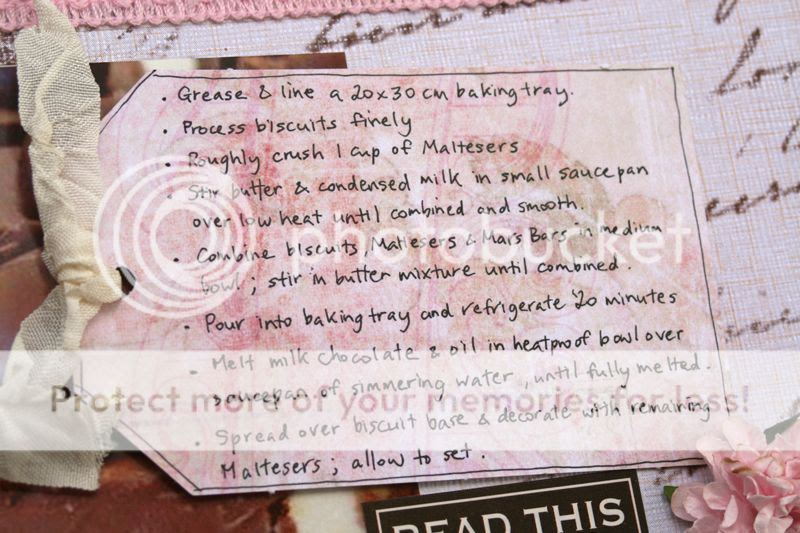 • Grease & line a 20x30 cm baking tray.
• Process biscuits finely
• Roughly crush 1 cup of Maltesers
• Stir butter & condensed milk in small saucepan
over low heat until combined and smooth.
• Combine biscuits, Maltesers & Mars Bars in medium
bowl; stir in butter mixture until combined.
• Pour into baking tray and refrigerate 20 minutes
• Melt milk chocolate & oil in heatproof bowl over
saucepan of simmering water, until fully melted.
• Spread over biscuit base & decorate with remaining
Maltesers; allow to set.
READ THIS
photobucket
Protect more of your memories for less!